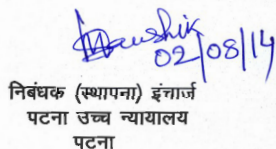 Kaushik
02/08/14
निबंधक (स्थापना) इंचार्ज
पटना उच्च न्यायालय
पटना